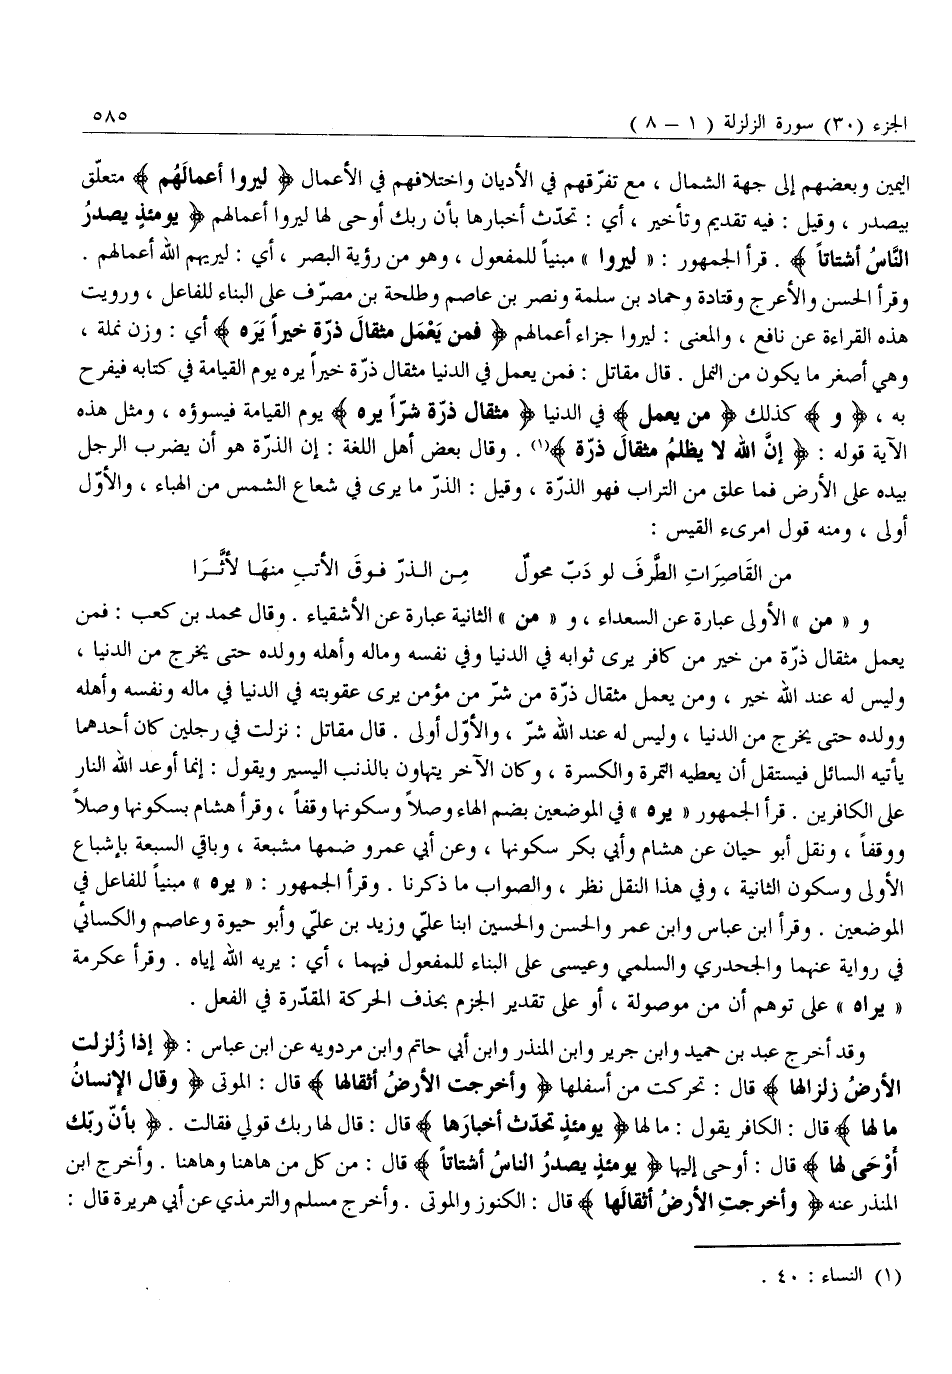 الجزء (٣٠) سورة الزلزلة ( ١ – ٨ )
٥٨٥
اليمين وبعضهم إلى جهة الشمال ، مع تفرّقهم في الأديان واختلافهم في الأعمال ﴿ ليروا أعمالَهُم ﴾ متعلّق
بيصدر ، وقيل : فيه تقديم وتأخير ، أي : تحدّث أخبارها بأن ربك أوحى لها ليروا أعمالهم ﴿ يومئذٍ يصدرُ
النَّاسُ أشتاتاً ﴾ . قرأ الجمهور : « ليروا » مبنياً للمفعول ، وهو من رؤية البصر ، أي : ليريهم الله أعمالهم .
وقرأ الحسن والأعرج وقتادة وحماد بن سلمة ونصر بن عاصم وطلحة بن مصرّف على البناء للفاعل ، ورويت
هذه القراءة عن نافع ، والمعنى : ليروا جزاء أعمالهم ﴿ فمن يَعْمَل مثقالَ ذرّة خيراً يَرَه ﴾ أي : وزن نملة ،
وهي أصغر ما يكون من النمل . قال مقاتل : فمن يعمل في الدنيا مثقال ذرّة خيراً يره يوم القيامة في كتابه فيفرح
به ، ﴿ و ﴾ كذلك ﴿ من يعمل ﴾ في الدنيا ﴿ مثقال ذرّة شرّاً يره ﴾ يوم القيامة فيسوؤه ، ومثل هذه
الآية قوله : ﴿ إنَّ الله لا يظلمُ مثقالَ ذرّة ﴾(١) . وقال بعض أهل اللغة : إن الذرّة هو أن يضرب الرجل
بيده على الأرض فما علق من التراب فهو الذرّة ، وقيل : الذرّ ما يرى في شعاع الشمس من الهباء ، والأوّل
أولى ، ومنه قول امرىء القيس :
من القَاصِرَاتِ الطَّرفَ لو دَبّ محولٌ مِـن الـذرّ فـوقَ الأتبِ منهَـا لأثَّـرَا
و « من » الأولى عبارة عن السعداء ، و « من » الثانية عبارة عن الأشقياء . وقال محمد بن كعب : فمن
يعمل مثقال ذرّة من خير من كافر يرى ثوابه في الدنيا وفي نفسه وماله وأهله وولده حتى يخرج من الدنيا ،
وليس له عند الله خير ، ومن يعمل مثقال ذرّة من شرّ من مؤمن يرى عقوبته في الدنيا في ماله ونفسه وأهله
وولده حتى يخرج من الدنيا ، وليس له عند الله شرّ ، والأوّل أولى . قال مقاتل : نزلت في رجلين كان أحدهما
يأتيه السائل فيستقل أن يعطيه التمرة والكسرة ، وكان الآخر يتهاون بالذنب اليسير ويقول : إنما أوعد الله النار
على الكافرين . قرأ الجمهور « يره » في الموضعين بضم الهاء وصلاً وسكونها وقفاً ، وقرأ هشام بسكونها وصلاً
ووقفاً ، ونقل أبو حيان عن هشام وأبي بكر سكونها ، وعن أبي عمرو ضمها مشبعة ، وباقي السبعة بإشباع
الأولى وسكون الثانية ، وفي هذا النقل نظر ، والصواب ما ذكرنا . وقرأ الجمهور : « يره » مبنياً للفاعل في
الموضعين . وقرأ ابن عباس وابن عمر والحسن والحسين ابنا عليّ وزيد بن عليّ وأبو حيوة وعاصم والكسائي
في رواية عنهما والجحدري والسلمي وعيسى على البناء للمفعول فيهما ، أي : يريه الله إياه . وقرأ عكرمة
« يراه » على توهم أن من موصولة ، أو على تقدير الجزم بحذف الحركة المقدّرة في الفعل .
وقد أخرج عبد بن حميد وابن جرير وابن المنذر وابن أبي حاتم وابن مردويه عن ابن عباس : ﴿ إذا زُلزلت
الأرضُ زلزالها ﴾ قال : تحركت من أسفلها ﴿ وأخرجت الأرضُ أثقالها ﴾ قال : الموتى ﴿ وقال الإنسانُ
ما لها ﴾ قال : الكافر يقول : ما لها ﴿ يومئذٍ تحدّث أخبارَها ﴾ قال : قال لها ربك قولي فقالت . ﴿ بأنّ ربّك
أوْحَى لها ﴾ قال : أوحى إليها ﴿ يومئذٍ يصدرُ الناسُ أشتاتاً ﴾ قال : من كل من هاهنا وهاهنا . وأخرج ابن
المنذر عنه ﴿ وأخرجتِ الأرضُ أثقالَها ﴾ قال : الكنوز والموتى . وأخرج مسلم والترمذي عن أبي هريرة قال :
(١) النساء : ٤٠ .